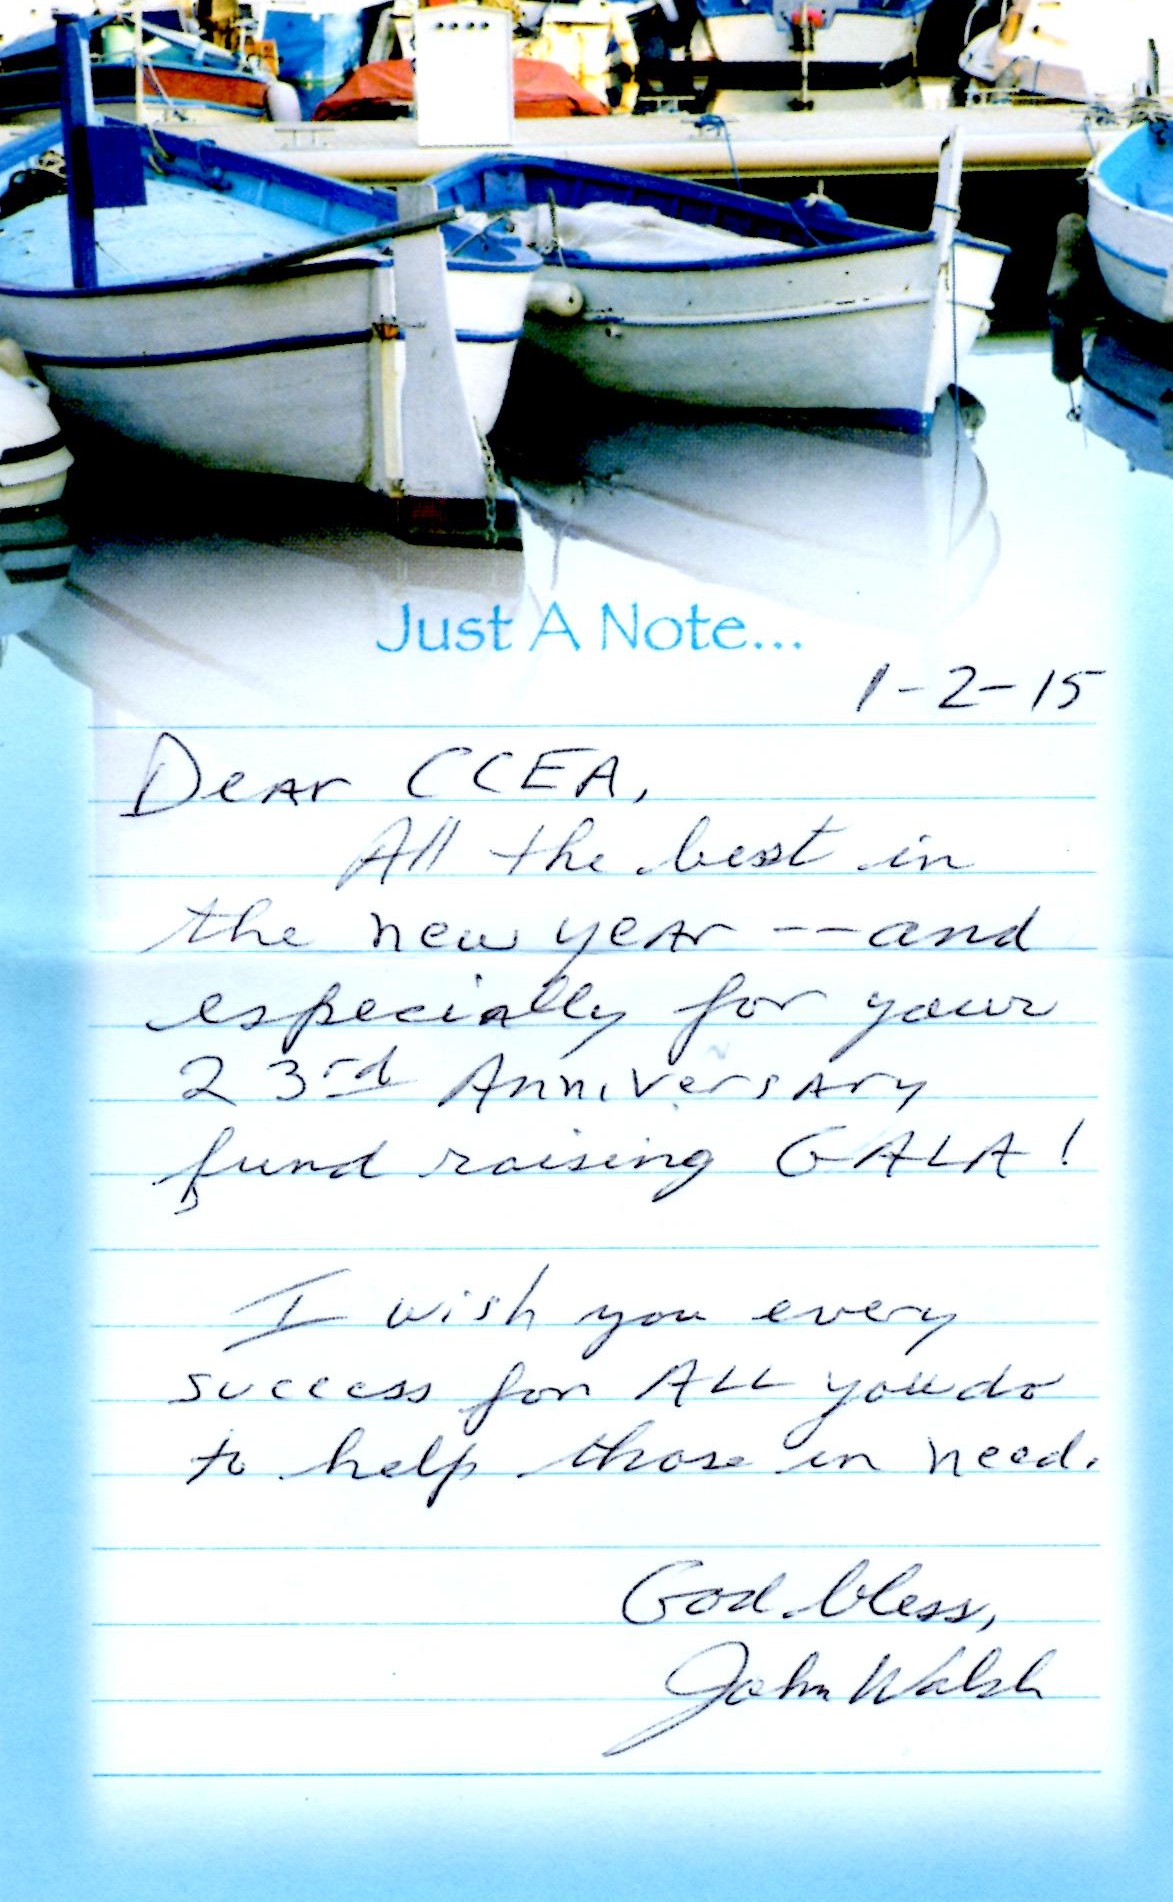 Just A Note...
1-2-15
Dear CCEA,
All the best in
the new year -- and
especially for your
23rd Anniversary
fund raising GALA!
I wish you every
success for ALL you do
to help those in need.
God bless,
John Walsh